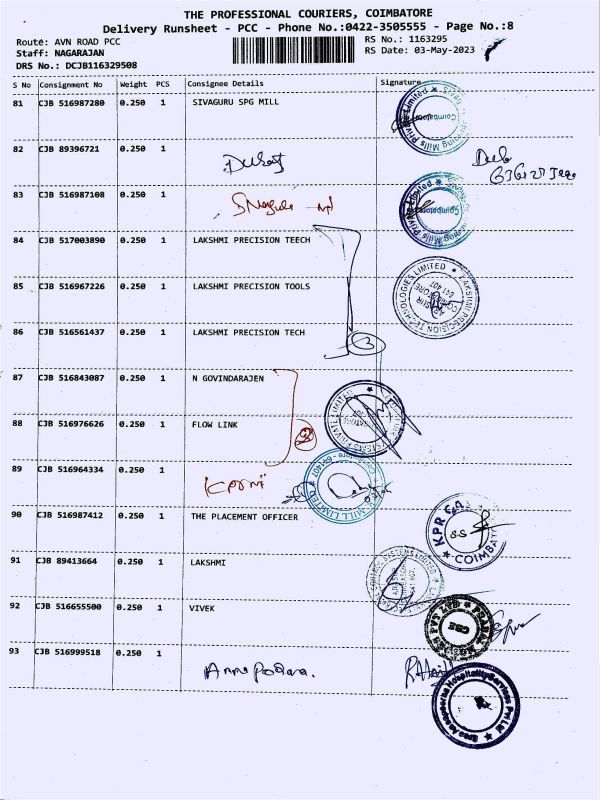 THE PROFESSIONAL COURIERS, COIMBATORE
Delivery Runsheet - PCC - Phone No.:0422-3505555 - Page No.:8
Route: AVN ROAD PCC RS No.: 1163295
Staff: NAGARAJAN RS Date: 03-May-2023
DRS No.: DCJB116329508
S No Consignment No Weight PCS Consignee Details Signature
81 CJB 516987280 0.250 1 SIVAGURU SPG MILL
82 CJB 89396721 0.250 1
83 CJB 516987108 0.250 1
84 CJB 517003890 0.250 1 LAKSHMI PRECISION TEECH
85 CJB 516967226 0.250 1 LAKSHMI PRECISION TOOLS
LAKSHMI PRECISION TECHNOLOGIES LIMITED
641 407
86 CJB 516561437 0.250 1 LAKSHMI PRECISION TECH
3
87 CJB 516843087 0.250 1 N GOVINDARAJEN
88 CJB 516976626 0.250 1 FLOW LINK
2
89 CJB 516964334 0.250 1
90 CJB 516987412 0.250 1 THE PLACEMENT OFFICER
KPR
91 CJB 89413664 0.250 1 LAKSHMI
92 CJB 516655500 0.250 1 VIVEK
CBE
93 CJB 516999518 0.250 1
Sree Annapoorna Hospitality Services Pvt Ltd